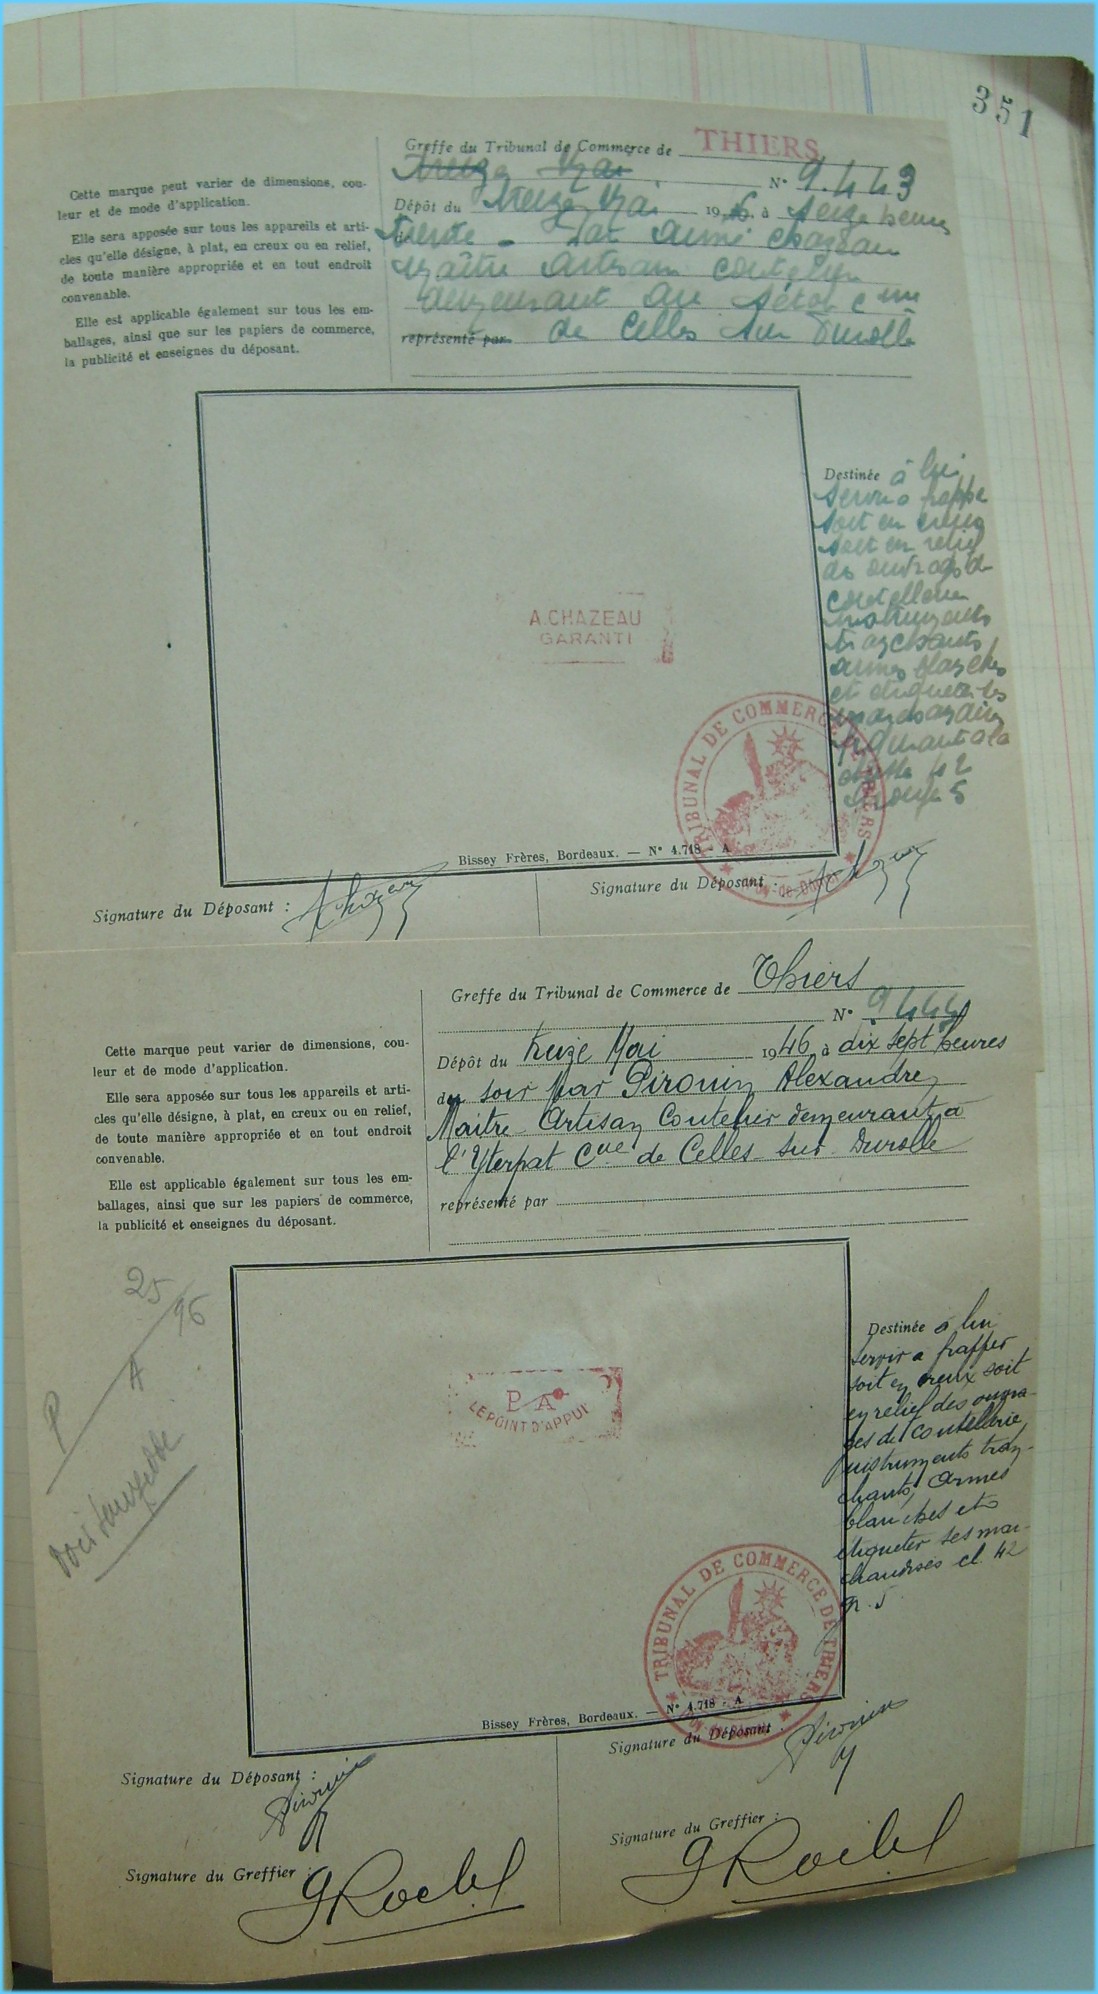 351
Greffe du Tribunal de Commerce de THIERS
Treize Mai
N° 9.443
Dépôt du Treize Mai 1946, à seize heures
trente - Par Aimé Chazeau
Maître Artisan coutelier
demeurant au Sétol Cne
représenté par de Celles sur Durolle
Cette marque peut varier de dimensions, cou-
leur et de mode d'application.
Elle sera apposée sur tous les appareils et arti-
cles qu'elle désigne, à plat, en creux ou en relief,
de toute manière appropriée et en tout endroit
convenable.
Elle est applicable également sur tous les em-
ballages, ainsi que sur les papiers de commerce,
la publicité et enseignes du déposant.
A. CHAZEAU
GARANTI
Destinée à lui
servir à frapper
soit en creux
soit en relief
des ouvrages de
coutellerie
instruments
tranchants
armes blanches
et étiqueter les
marchandises
classe 42
groupe 5
TRIBUNAL DE COMMERCE DE THIERS
Puy-de-Dôme
Bissey Frères, Bordeaux. — N° 4.718 - A
Signature du Déposant : AChazeau
Signature du Déposant : AChazeau
Greffe du Tribunal de Commerce de Thiers
N° 9444
Dépôt du Treize Mai 1946, à dix sept heures
du soir Par Pironin Alexandre
Maitre Artisan Coutelier demeurant à
l'Yterpat Cne de Celles sur Durolle
représenté par
Cette marque peut varier de dimensions, cou-
leur et de mode d'application.
Elle sera apposée sur tous les appareils et arti-
cles qu'elle désigne, à plat, en creux ou en relief,
de toute manière appropriée et en tout endroit
convenable.
Elle est applicable également sur tous les em-
ballages, ainsi que sur les papiers de commerce,
la publicité et enseignes du déposant.
25
96
P
A
P A
LE POINT D'APPUI
Destinée à lui
servir a frapper
soit en creux soit
en relief des ouvra-
ges de Coutellerie,
instruments tran-
chants, Armes
blanches et à
étiqueter ses mar-
chandises cl. 42
gr. 5
TRIBUNAL DE COMMERCE DE THIERS
Bissey Frères, Bordeaux. — N° 4.718 - A
Signature du Déposant : Pironin
Signature du Déposant : Pironin
Signature du Greffier :
Signature du Greffier :